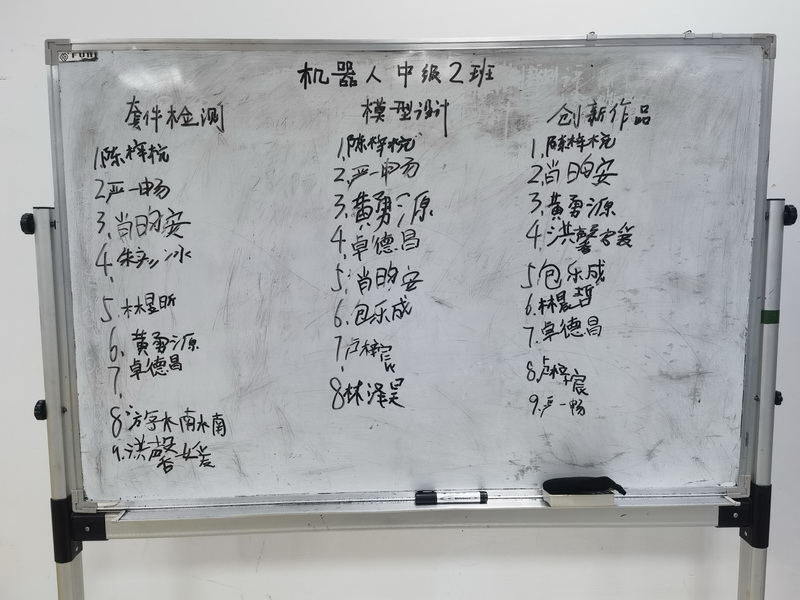 机器人中级2班
套件检测
1.陈梓杭
2.严一畅
3.肖昀安
4.
5.林昱昕
6.黄勇源
7.卓德昌
8.方字木南木南
9.洪馨媛
模型设计
1.陈梓杭
2.严一畅
3.黄勇源
4.卓德昌
5.肖昀安
6.包乐成
7.卢梓宸
8.林泽昊
创新作品
1.陈梓杭
2.肖昀安
3.黄勇源
4.洪馨媛
5.包乐成
6.林晨哲
7.卓德昌
8.卢梓宸
9.严一畅